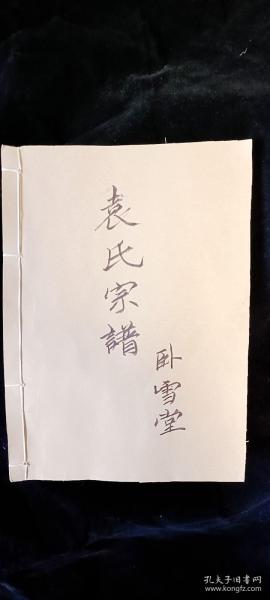 袁氏宗譜
卧雪堂
孔夫子旧书网
www.kongfz.com